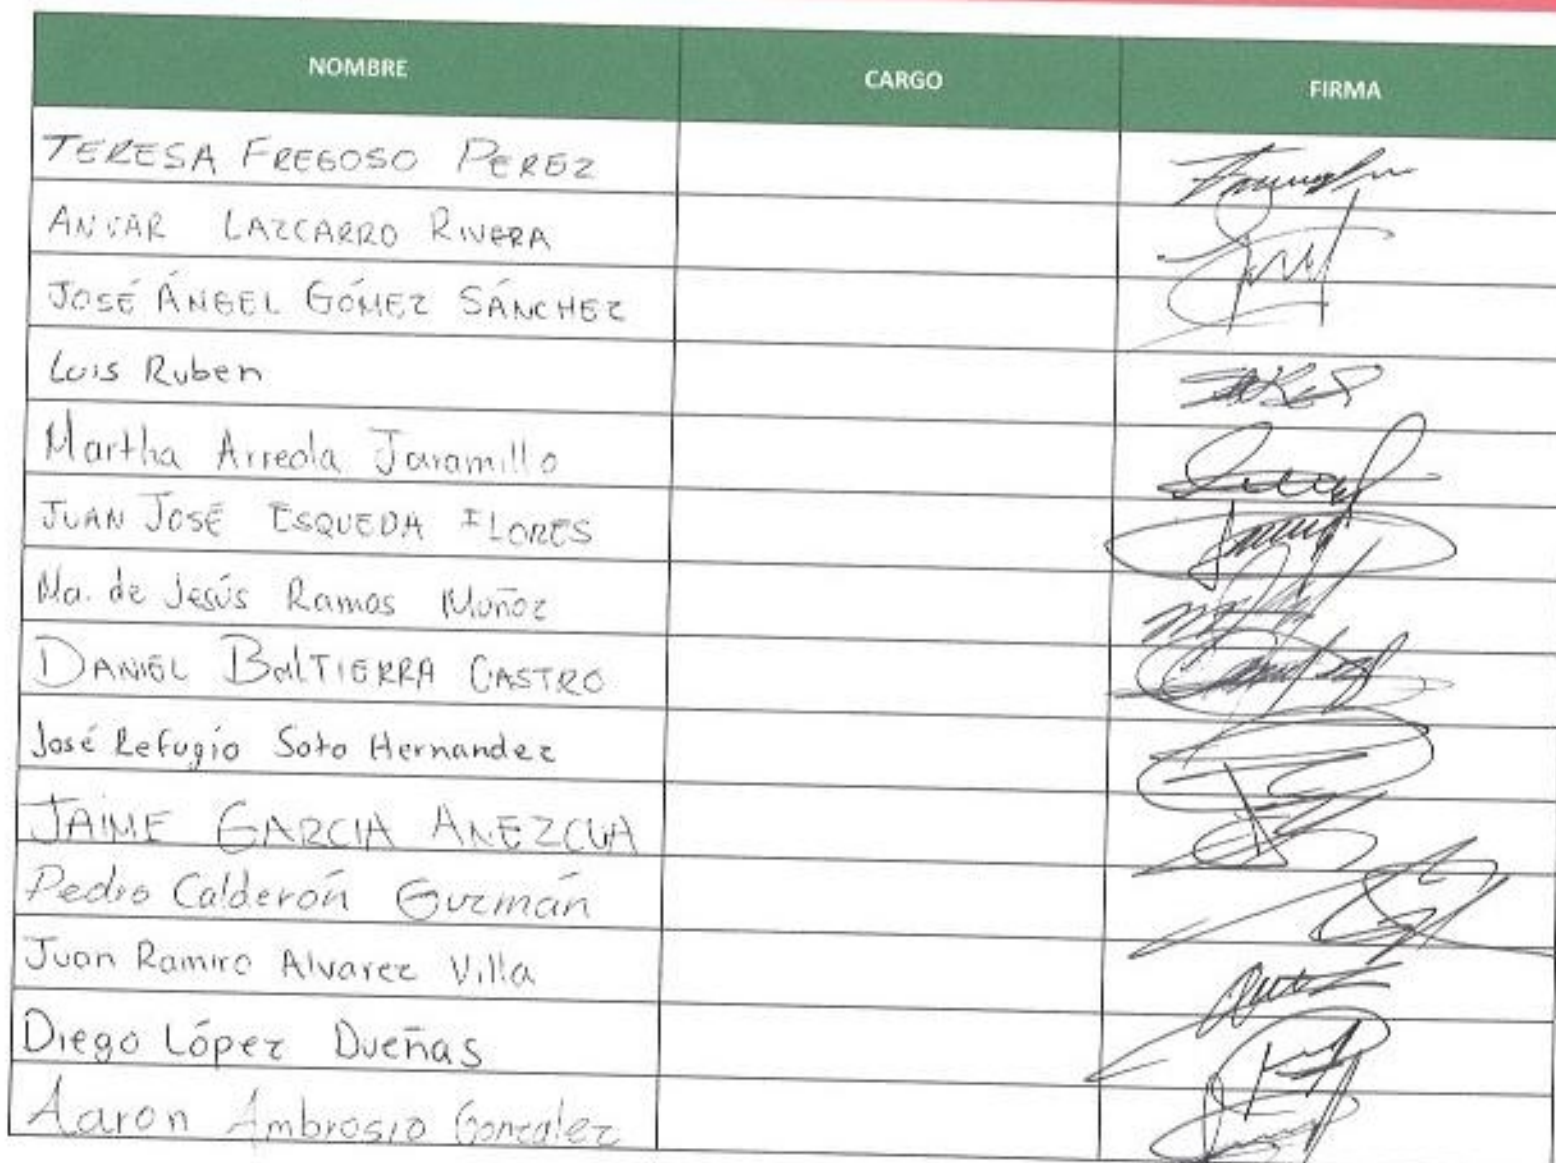 NOMBRE CARGO FIRMA
TERESA FREGOSO PEREZ
ANVAR LAZCARRO RIVERA
JOSÉ ÁNGEL GÓMEZ SÁNCHEZ
Luis Ruben
Martha Arreola Jaramillo
JUAN JOSÉ ESQUEDA FLORES
Ma. de Jesús Ramos Muñoz
DANIEL BALTIERRA CASTRO
José Refugio Soto Hernandez
JAIME GARCIA AMEZCUA
Pedro Calderón Guzmán
Juan Ramiro Alvarez Villa
Diego López Dueñas
Aaron Ambrosio Gonzalez